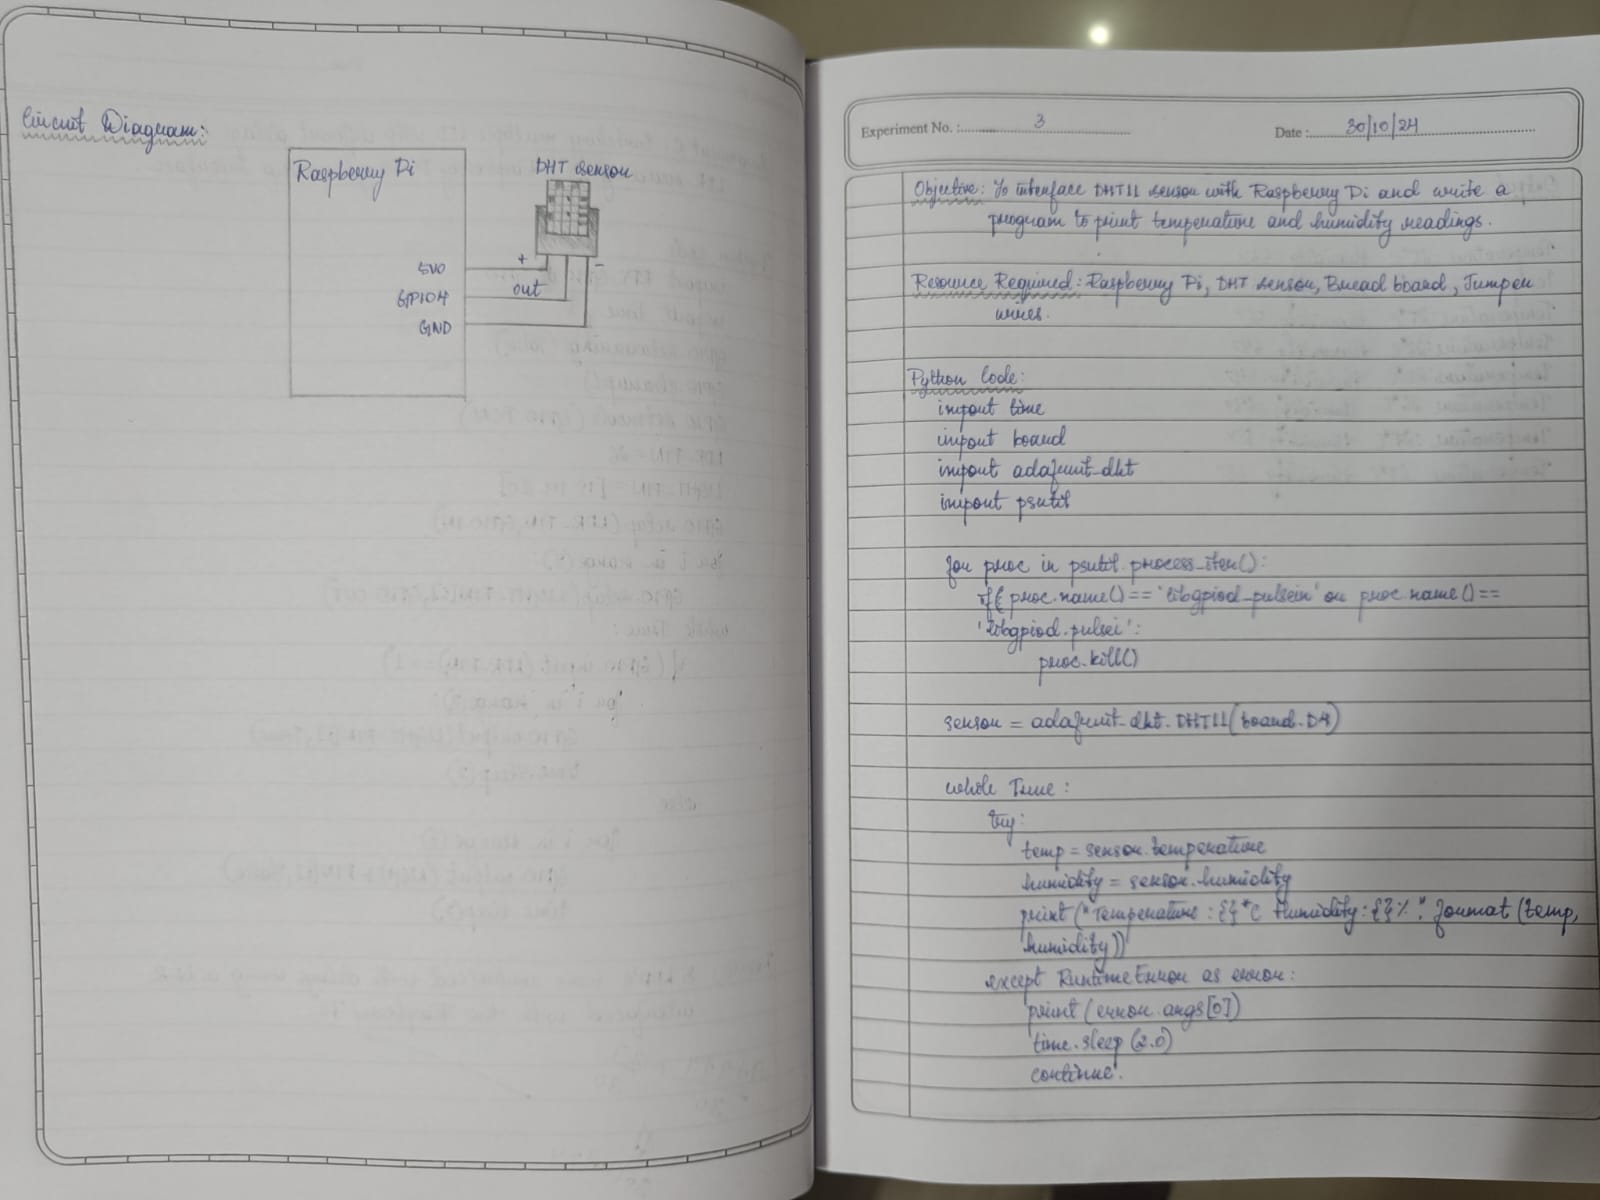 Circuit Diagram:
Raspberry Pi
DHT sensor
5VO
+
-
out
GPIO4
GND
Experiment No. : 3
Date : 30/10/24
Objective: To interface DHT11 sensor with Raspberry Pi and write a
program to print temperature and humidity readings.
Resource Required: Raspberry Pi, DHT sensor, Bread board, Jumper
wires.
Python Code:
import time
import board
import adafruit_dht
import psutil
for proc in psutil.process_iter():
if proc.name() == 'libgpiod_pulsein' or proc.name() ==
'libgpiod.pulsei':
proc.kill()
sensor = adafruit_dht.DHT11(board.D4)
while True:
try:
temp = sensor.temperature
humidity = sensor.humidity
print("Temperature: {}*C Humidity: {}%".format(temp,
humidity))
except RuntimeError as error:
print(error.args[0])
time.sleep(2.0)
continue.